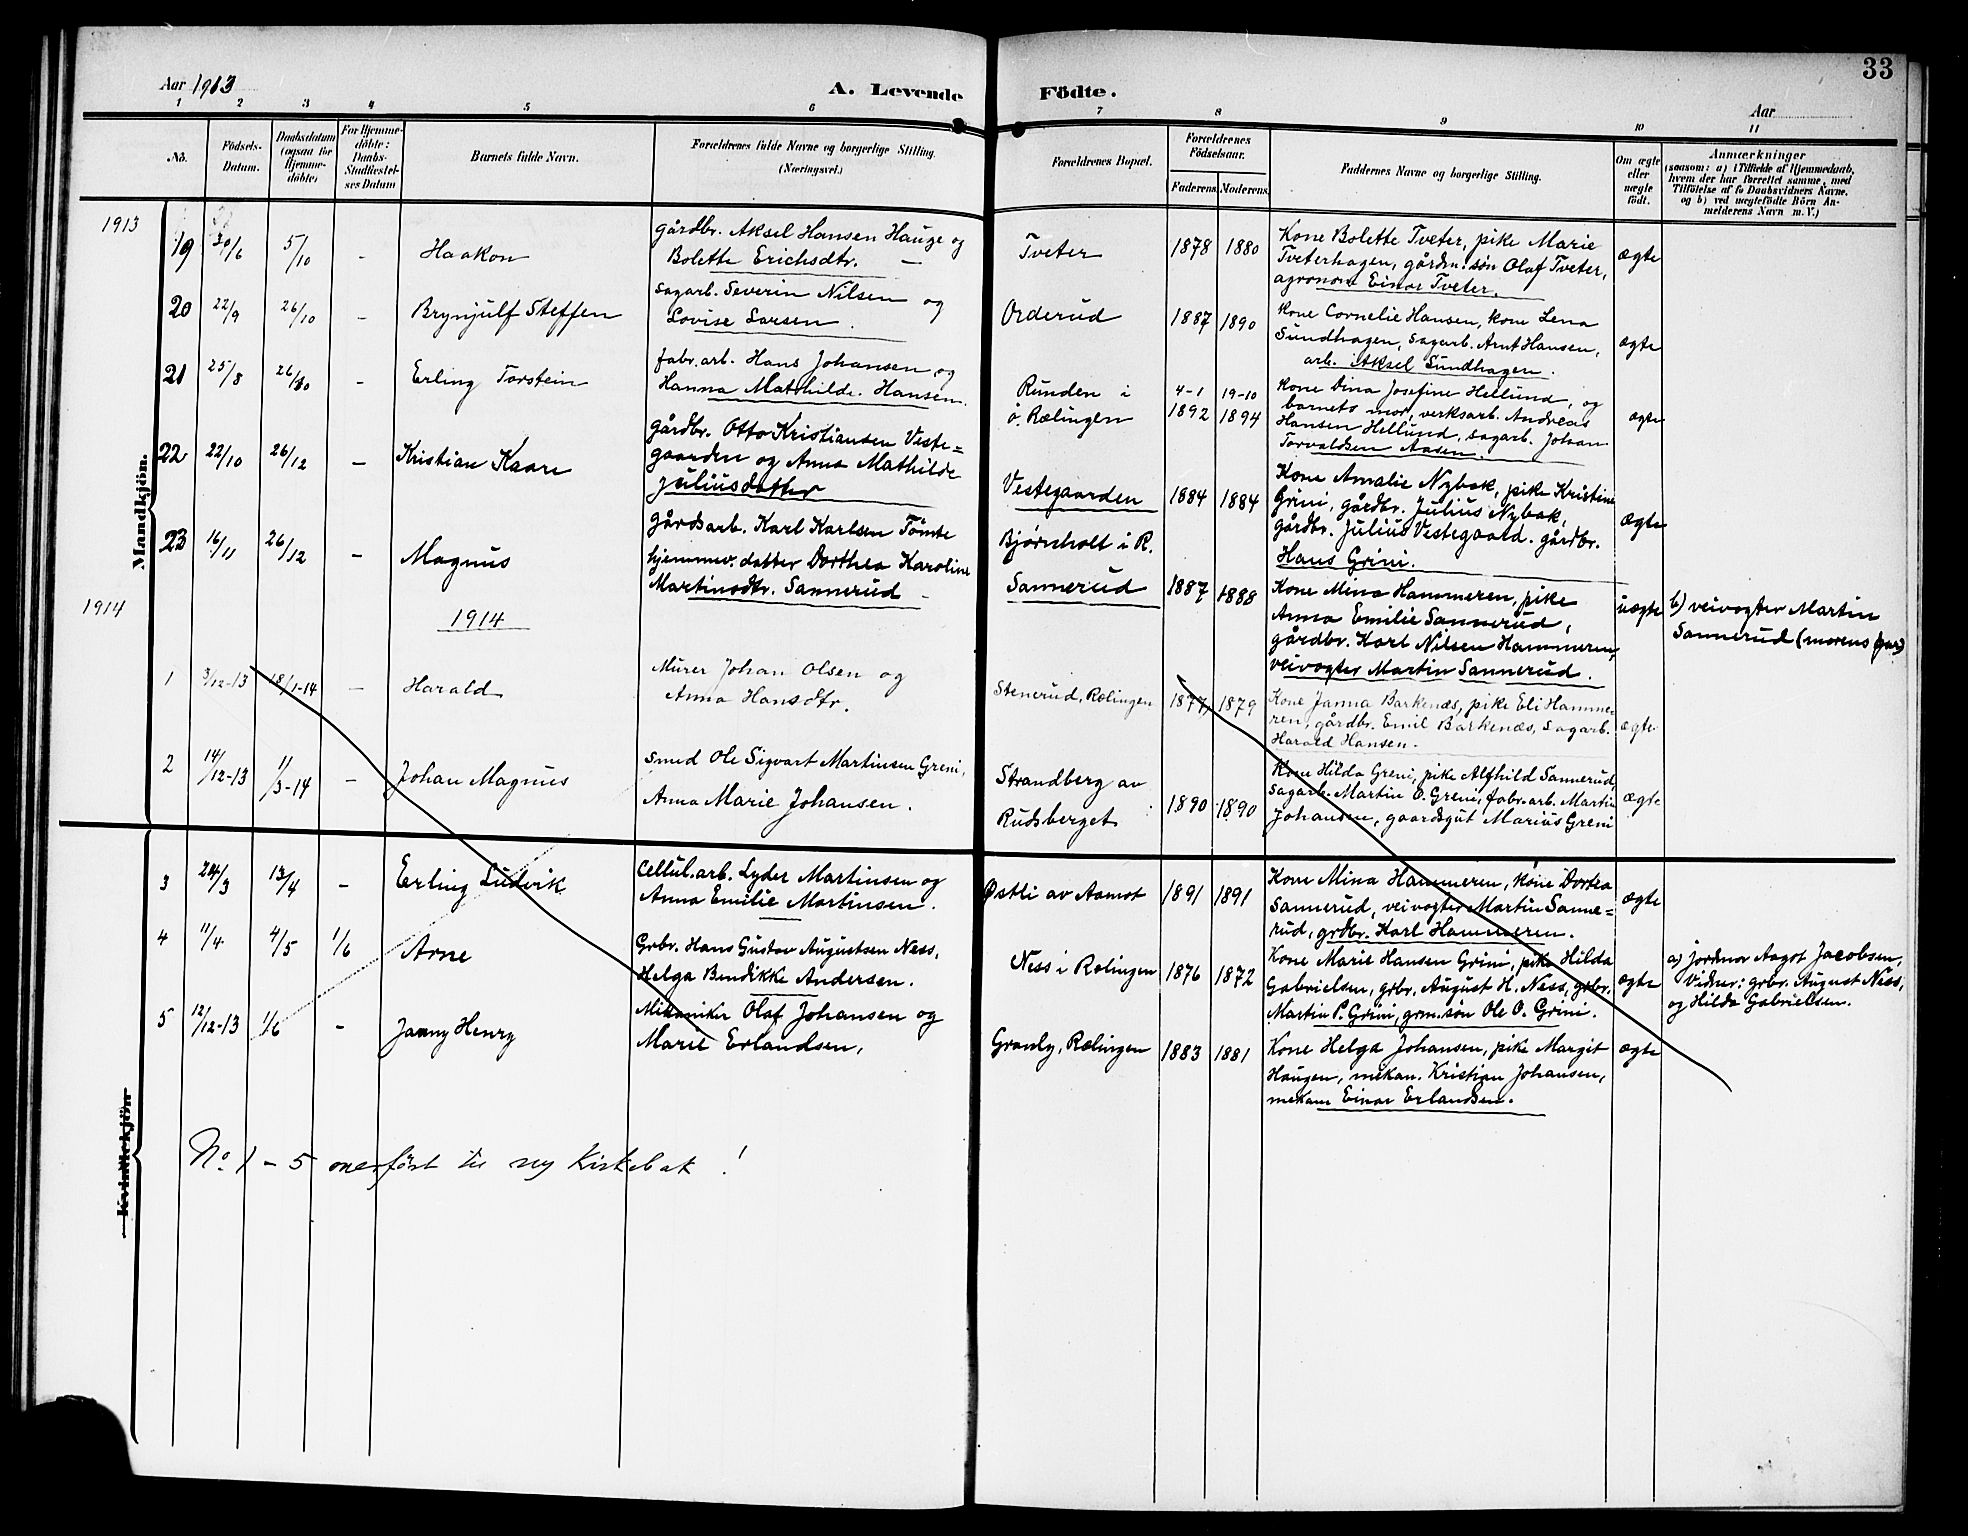 33
Aar 1913
A. Levende Födte.
Aar
1 2 3 4 5 6 7 8 9 10 11
No.
Födsels-Datum.
Daabsdatum (ogsaa for Hjemme-döbte)
For Hjemme-döbte: Daabs-Stadfæstel-ses Datum
Barnets fulde Navn.
Forældrenes fulde Navne og borgerlige Stilling.
(Næringsvei.)
Forældrenes Bopæl.
Forældrenes Födselsaar.
Faderens. Moderens.
Faddernes Navne og borgerlige Stilling.
Om ægte eller uægte født.
Anmærkninger
(saasom: a) i Tilfælde af Hjemmedaab,
hvem der har forrettet samme, med
Tilföielse af to Daabsvidners Navne.
og b) ved uægtefödte Börn An-
melderens Navn m. V.)
Mandkjön.
1913
19 30/6 5/10 - Haakon
gårdbr. Aksel Hansen Hauge og
Bolette Erichsdtr.
Tveter 1878 1880
Kone Bolette Tveter, pike Marie
Tveterhagen, gårdm. søn Olaf Tveter,
agronom Einar Tveter.
ægte
20 22/9 26/10 - Brynjulf Steffen
Sagarb. Severin Nilsen og
Lovise Larsen.
Orderud 1887 1890
Kone Cornelie Hansen, kone Lena
Sundhagen, sagarb. Arnt Hansen,
arb. Aksel Sundhagen.
ægte
21 25/8 26/10 - Erling Torstein
fabr.arb. Hans Johansen og
Hanna Mathilde Hansen.
Runden i
ö. Rælingen
4-1 1892 19-10 1894
Kone Dina Josefine Hellund, og
barnets mor, verksarb. Andreas
Hansen Hellund, sagarb. Johan
Torvaldsen Aasen.
ægte
22 22/10 26/12 - Kristian Kaare
gårdbr. Otto Kristiansen Veste=
gaarden og Anna Mathilde
Juliusdatter
Vestegaarden 1884 1884
Kone Amalie Nybak, pike Kristine
Grini, gårdbr. Julius Nybak,
gårdbr. Julius Vestegaard. gårdbr.
Hans Grini.
ægte
23 16/11 26/12 - Magnus
gårdsarb. Karl Karlsen Tömte
hjemmev. datter Dorthea Karoline
Martinsdtr. Sannerud
Bjørnholt i R.
Sannerud 1887 1888
Kone Mina Hammeren, pike
Anna Emilie Sannerud,
gårdbr. Karl Nilsen Hammeren,
veivogter Martin Sannerud.
uægte
b) veivogter Martin
Sannerud (morens far)
1914
1914
1 3/12-13 18/1-14 - Harald
Murer Johan Olsen og
Anna Hansdtr.
Stenerud, Rælingen 1877 1879
Kone Janna Barkenæs, pike Eli Hamme-
ren, gårdbr. Emil Barkenæs, Sagarb.
Harald Hansen.
ægte
2 14/12-13 1/3-14 - Johan Magnus
Smed Ole Sigvart Martinsen Greni,
Anna Marie Johansen.
Strandberg av
Rudsberget 1890 1890
Kone Hilda Greni, pike Alfhild Sannerud,
Sagarb. Martin O. Greni, fabr.arb. Martin
Johansen, gaardsgut Marius Greni
ægte
Kvindekjön
3 24/3 13/4 - Erling Ludvik
Cellul.arb. Lyder Martinsen og
Anna Emilie Martinsen.
Østli av Aamot 1891 1891
Kone Mina Hammeren, kone Dortea
Sannerud, veivogter Martin Sanne=
rud, grdbr. Karl Hammeren.
ægte
4 11/4 4/5 1/6 Arne
Grbr. Hans Gustav Augustsen Ness,
Helga Bendikke Andersen.
Ness i Rælingen 1876 1872
Kone Marie Hansen Grini, pike Hilda
Gabrielsen, grbr. August H. Ness, grbr.
Martin P. Grini, grm. søn Ole O. Grini.
ægte
a) jordmor Aagot Jacobsen,
Vidner: grbr. August Ness,
og Hilda Gabrielsen.
5 12/12-13 1/6 - Janny Henry
Mekaniker Olaf Johansen og
Marie Erlandsen,
Granly, Rælingen 1883 1881
Kone Helga Johansen, pike Margit
Haugen, mekan. Kristian Johansen,
mekan Einar Erlandsen.
ægte
No. 1 - 5 overført til ny Kirkebok!